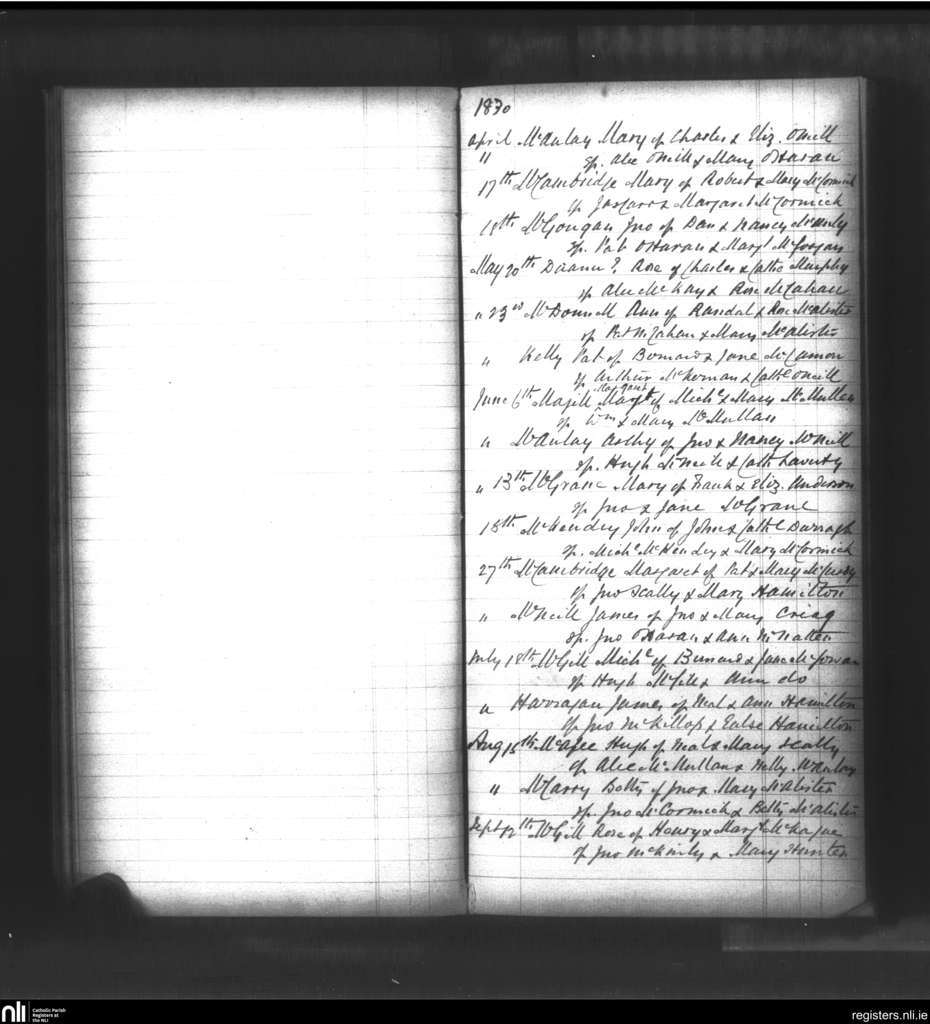 1830
April McAulay Mary of Charles & Eliz. ONeill
" sp. Alec ONeill & Mary OHaran
17th McCambridge Mary of Robert & Mary McCormick
sp Jas Carr & Margaret McCormick
18th McGougan Jno of Dan & Nancy
sp. Pat OHaran & Margt McGougan
May 20th ? Rose of Charles & Cathe Murphy
sp Alec McKay & Rose McCahan
" 23rd McDonnell Ann of Randal & Rose McAlister
sp Pat McCahan & Mary McAlister
" Kelly Pat of Bernard & Jane McCamon
sp Arthur McKernan & Cathe ONeill
Margaret
June 6th Magill Margt of Miche & Mary McMullen
sp Wm & Mary McMullan
" McAulay Archy of Jno & Nancy McNeill
sp. Hugh McNeill & Cath Laverty
" 13th McGrane Mary of Frank & Eliz. Anderson
sp Jno & Jane McGrane
18th McKendry John of John & Cathe Darragh
sp. Miche McHendry & Mary McCormick
27th McCambridge Margaret of Pat & Mary McCurdy
sp Jno Scally & Mary Hamilton
" McNeill James of Jno & Mary Criag
sp. Jno OHaran & Ann McNatten
July 18th McGill Miche of Bernard & Jane McGowan
sp Hugh McGill & Ann do
" Harragan James of Neal & Ann Hamilton
sp Jno McKillop & Ealse Hamilton
Aug 16th McAfee Hugh of Neal & Mary Scally
sp Alec McMullan & Nelly McAulay
" McCarry Betty of Jno & Mary McAlister
sp. Jno McCormick & Betty McAlister
Sept 12th McGill Rose of Henry & Margt McKague
sp Jno McKinly & Mary Hunter
nli
Catholic Parish
Registers at
the NLI
registers.nli.ie